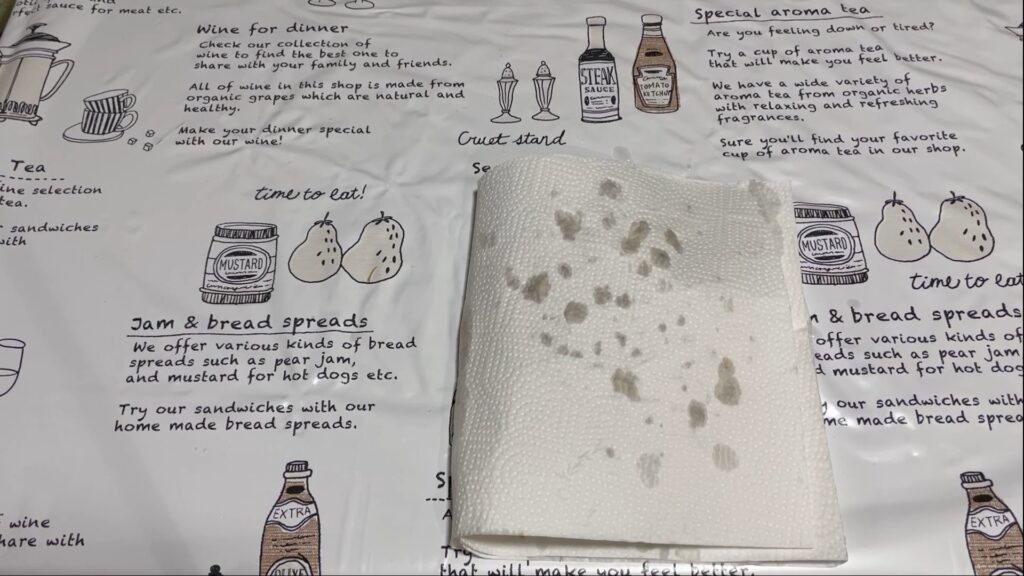 sauce for meat etc.
Wine for dinner
Check our collection of
wine to find the best one to
share with your family and friends.
All of wine in this shop is made from
organic grapes which are natural and
healthy.
Make your dinner special
with our wine!
STEAK
SAUCE
TOMATO
KETCHUP
Cruet stand
Se
Special aroma tea
Are you feeling down or tired?
Try a cup of aroma tea
that will make you feel better.
We have a wide variety of
aroma tea from organic herbs
with relaxing and refreshing
fragrances.
Sure you'll find your favorite
cup of aroma tea in our shop.
Tea
ine selection
tea.
sandwiches
with
time to eat!
MUSTARD
Jam & bread spreads
We offer various kinds of bread
spreads such as pear jam,
and mustard for hot dogs etc.
Try our sandwiches with our
home made bread spreads.
MUSTARD
time to eat
m & bread spreads
offer various kinds of
eads such as pear jam
d mustard for hot dog
our sandwiches with
me made bread sprea
wine
hare with
EXTRA
OLIVE
Sp
A
Try
that will make you feel better.
EXTRA